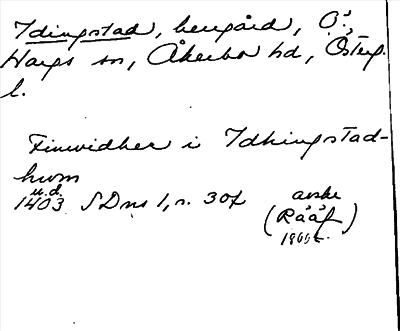 Idingstad, herrgård, Ö.
Hargs sn, Åkerbo hd, Österg.
l.
Finwidher i Idhingstad-
hwm
u.d.
1403 SDns 1, s. 30f avskr
(Rääf)